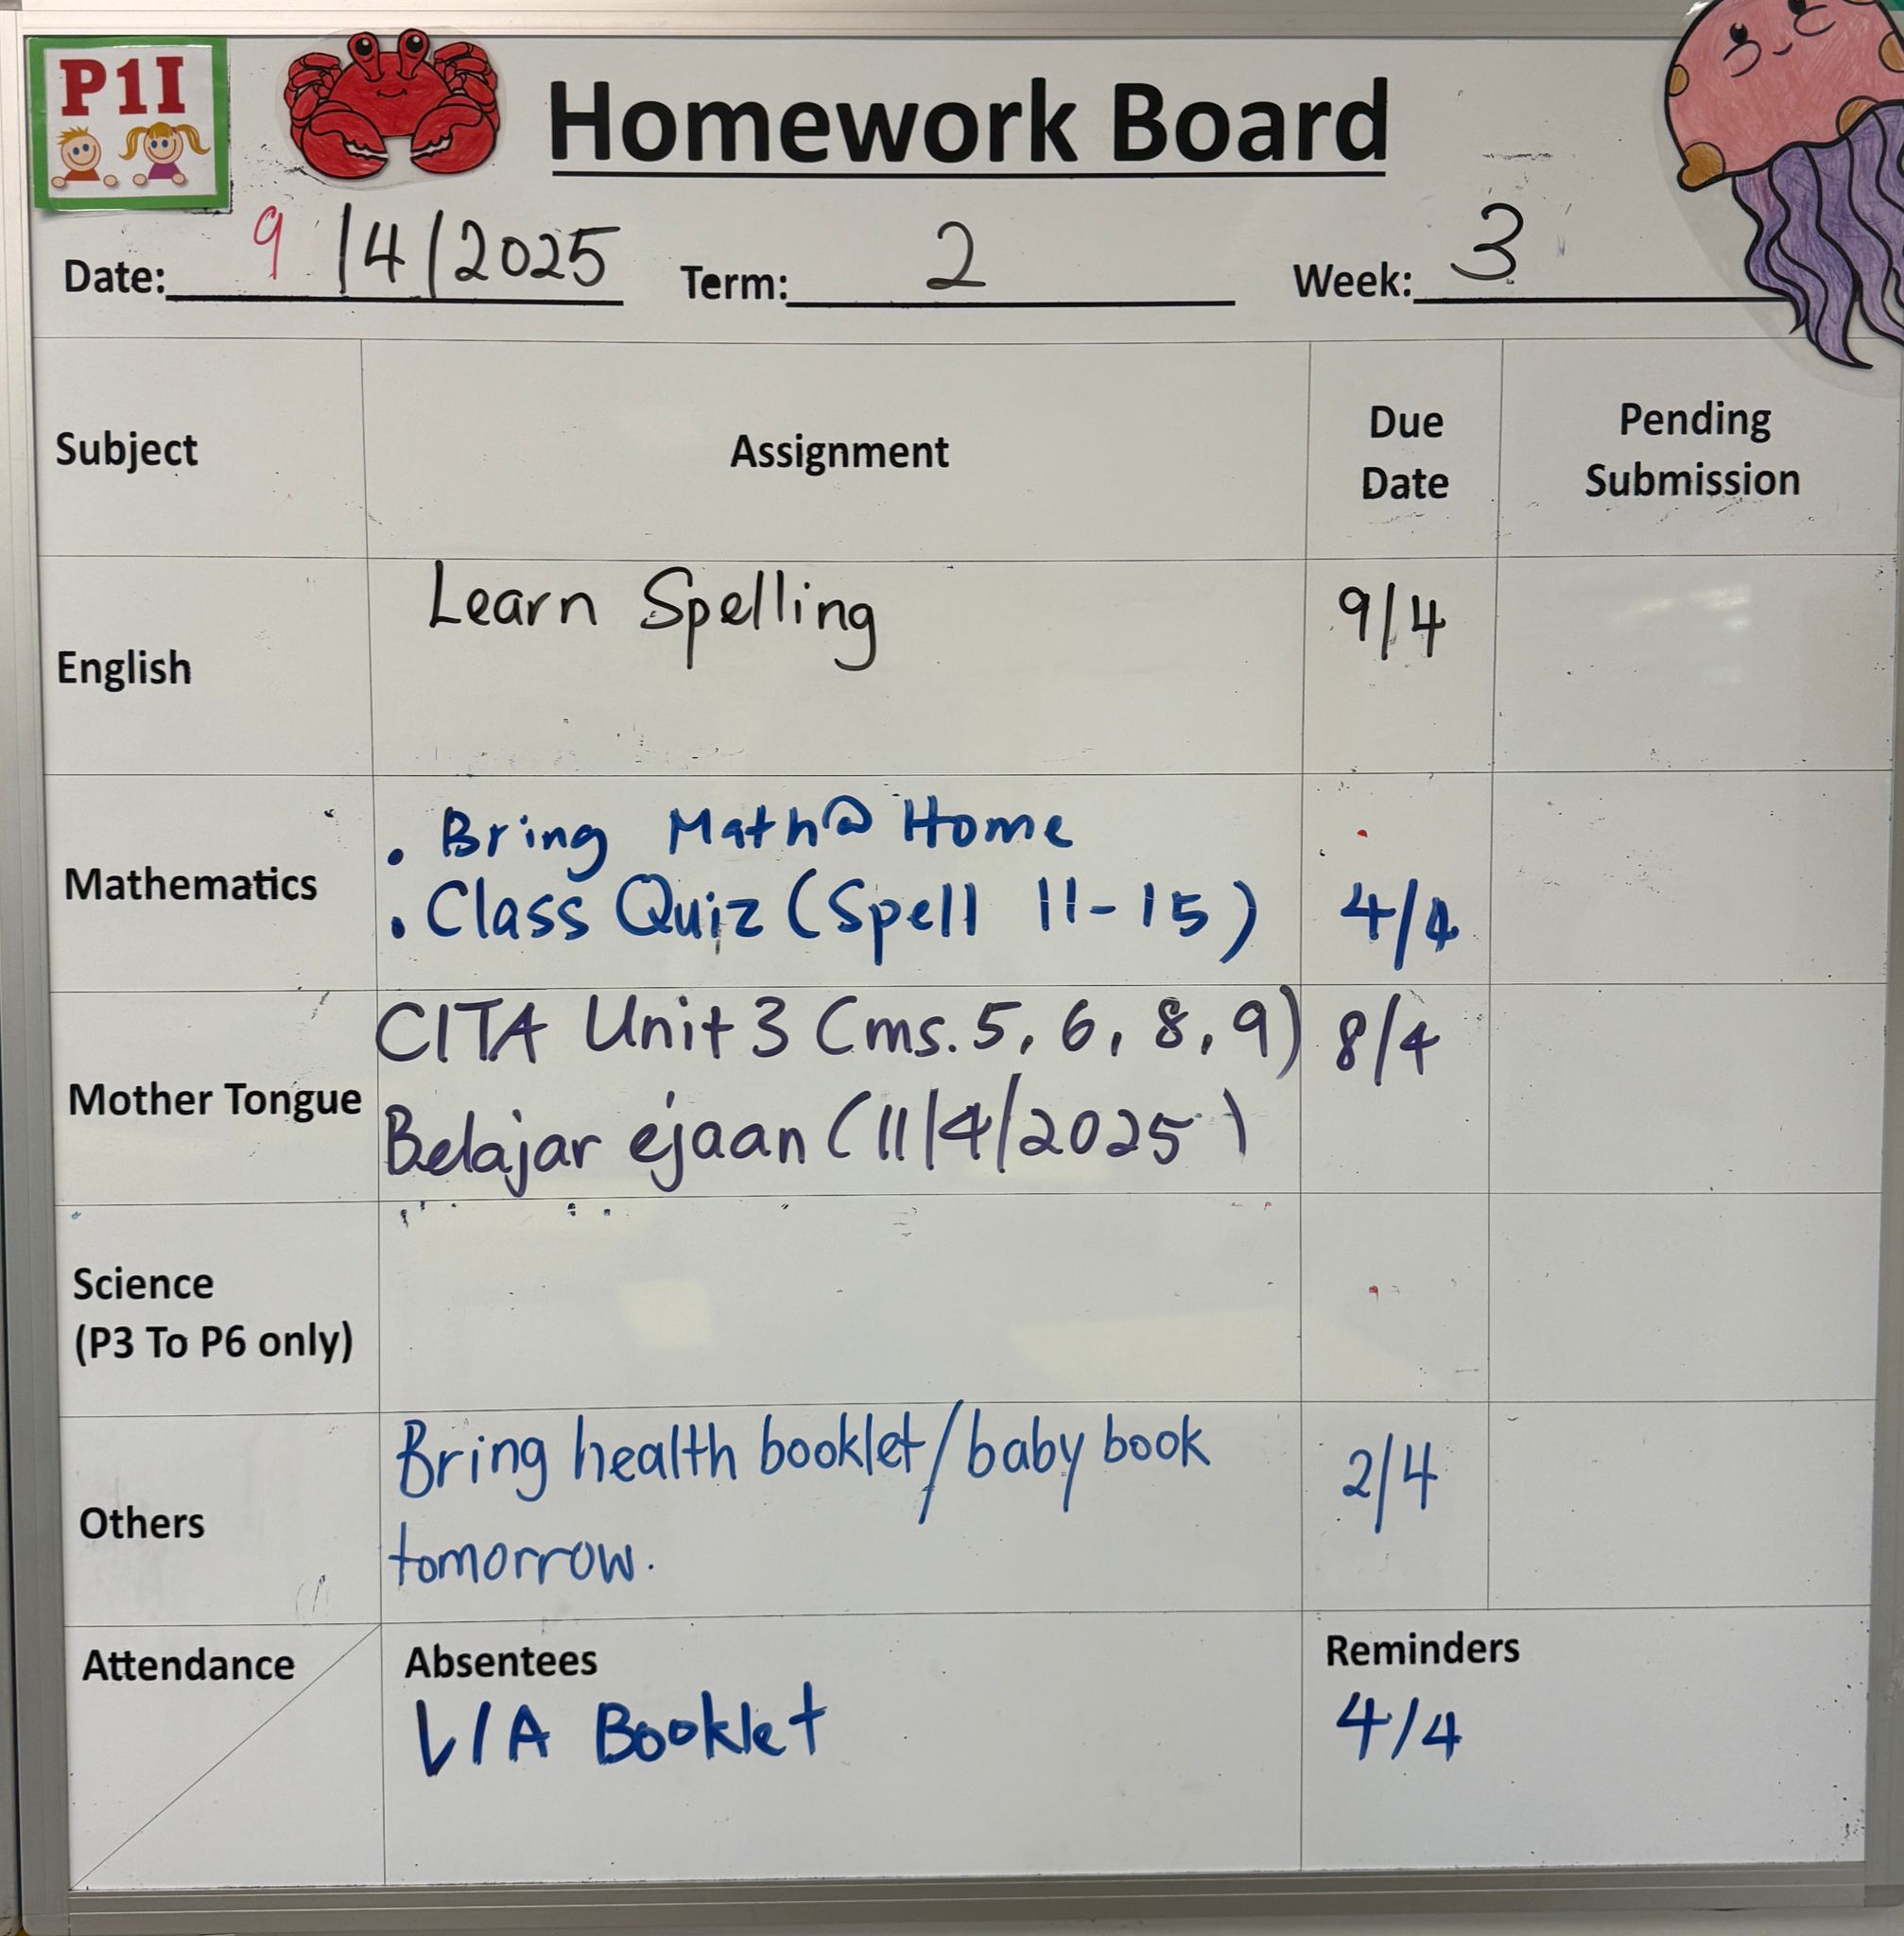 P1I
Homework Board
Date: 9/4/2025 Term: 2 Week: 3
Subject Assignment Due Date Pending Submission
English Learn Spelling 9/4
Mathematics
. Bring Math@Home
. Class Quiz (Spell 11-15) 4/4
Mother Tongue
CITA Unit 3 (ms. 5, 6, 8, 9) 8/4
Belajar ejaan (11/4/2025)
Science
(P3 To P6 only)
Others
Bring health booklet/baby book 2/4
tomorrow.
Attendance Absentees Reminders
L/A Booklet 4/4